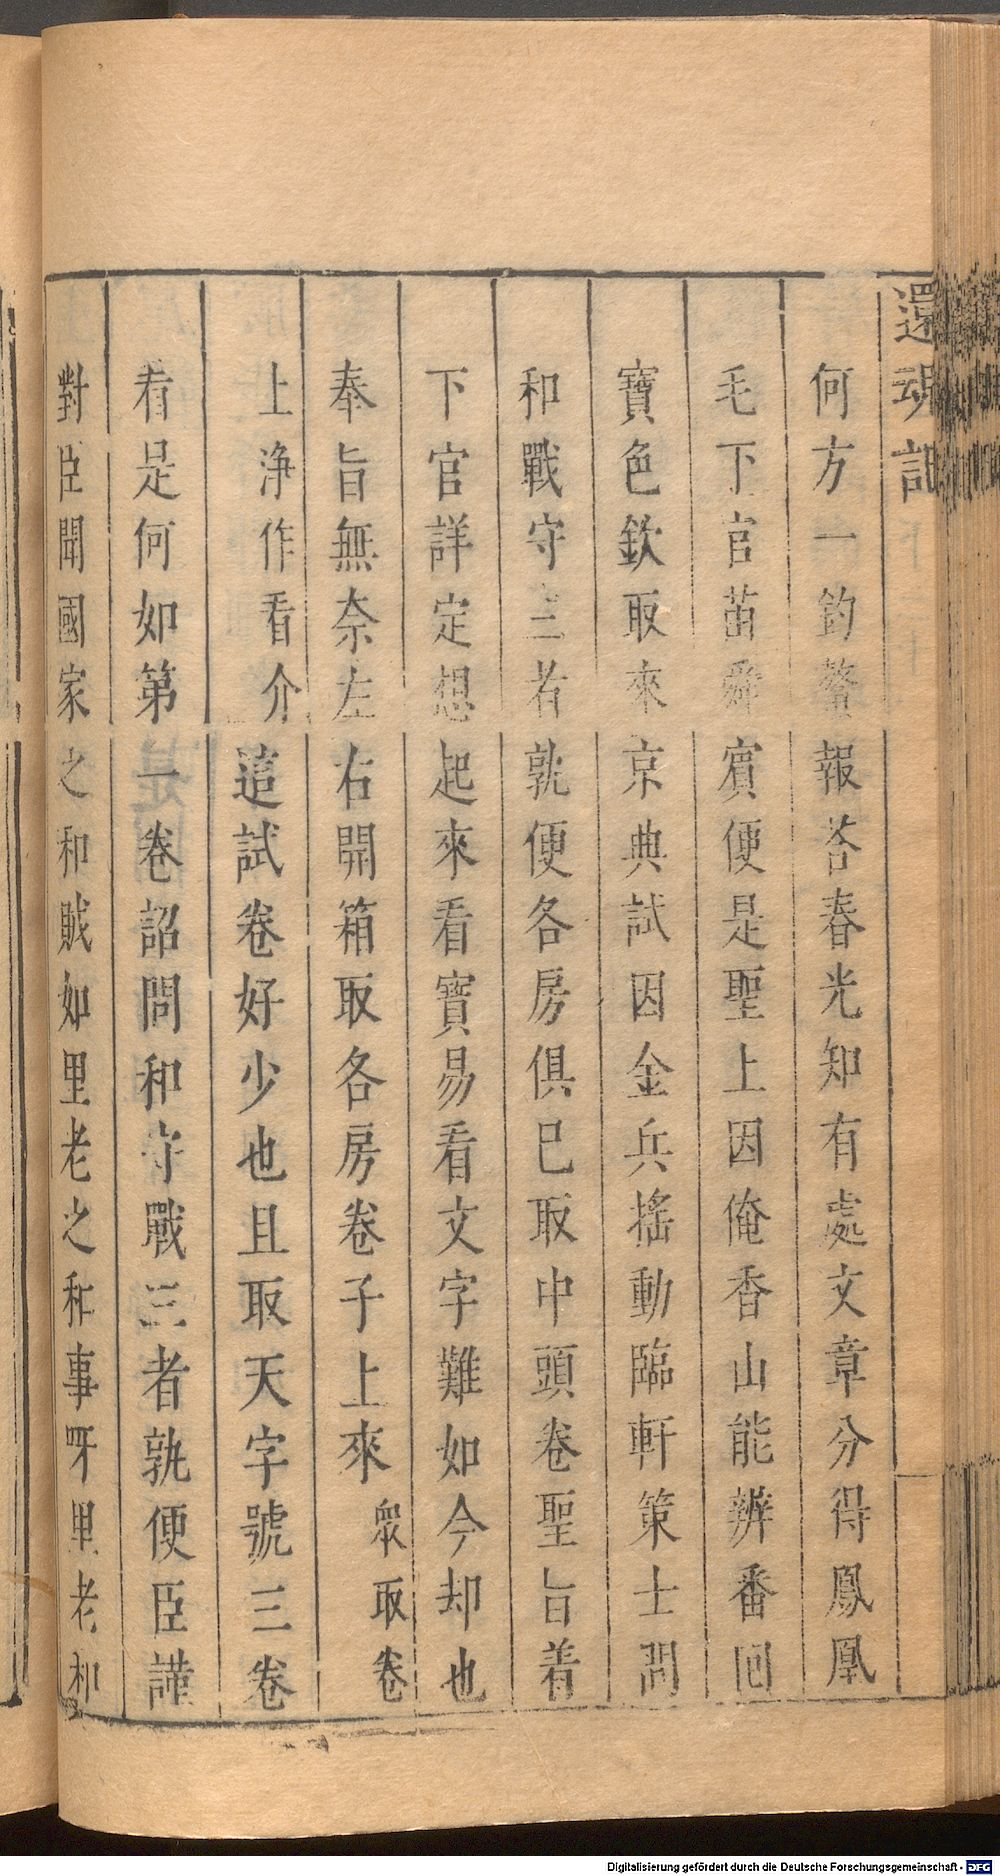 還魂記
何方一釣鰲報荅春光知有處文章分得鳳凰
毛下官苗舜賔便是聖上因俺香山能辨番回
寶色欽取來京典試因金兵搖動臨軒策士問
和戰守三者孰便各房俱已取中頭卷聖旨着
下官詳定想起來看寶易看文字難如今却也
奉旨無奈左右開箱取各房卷子上來衆取卷
上淨作看介這試卷好少也且取天字號三卷
看是何如第一卷詔問和守戰三者孰便臣謹
對臣聞國家之和賊如里老之和事呀里老和
Digitalisierung gefördert durch die Deutsche Forschungsgemeinschaft - DFG